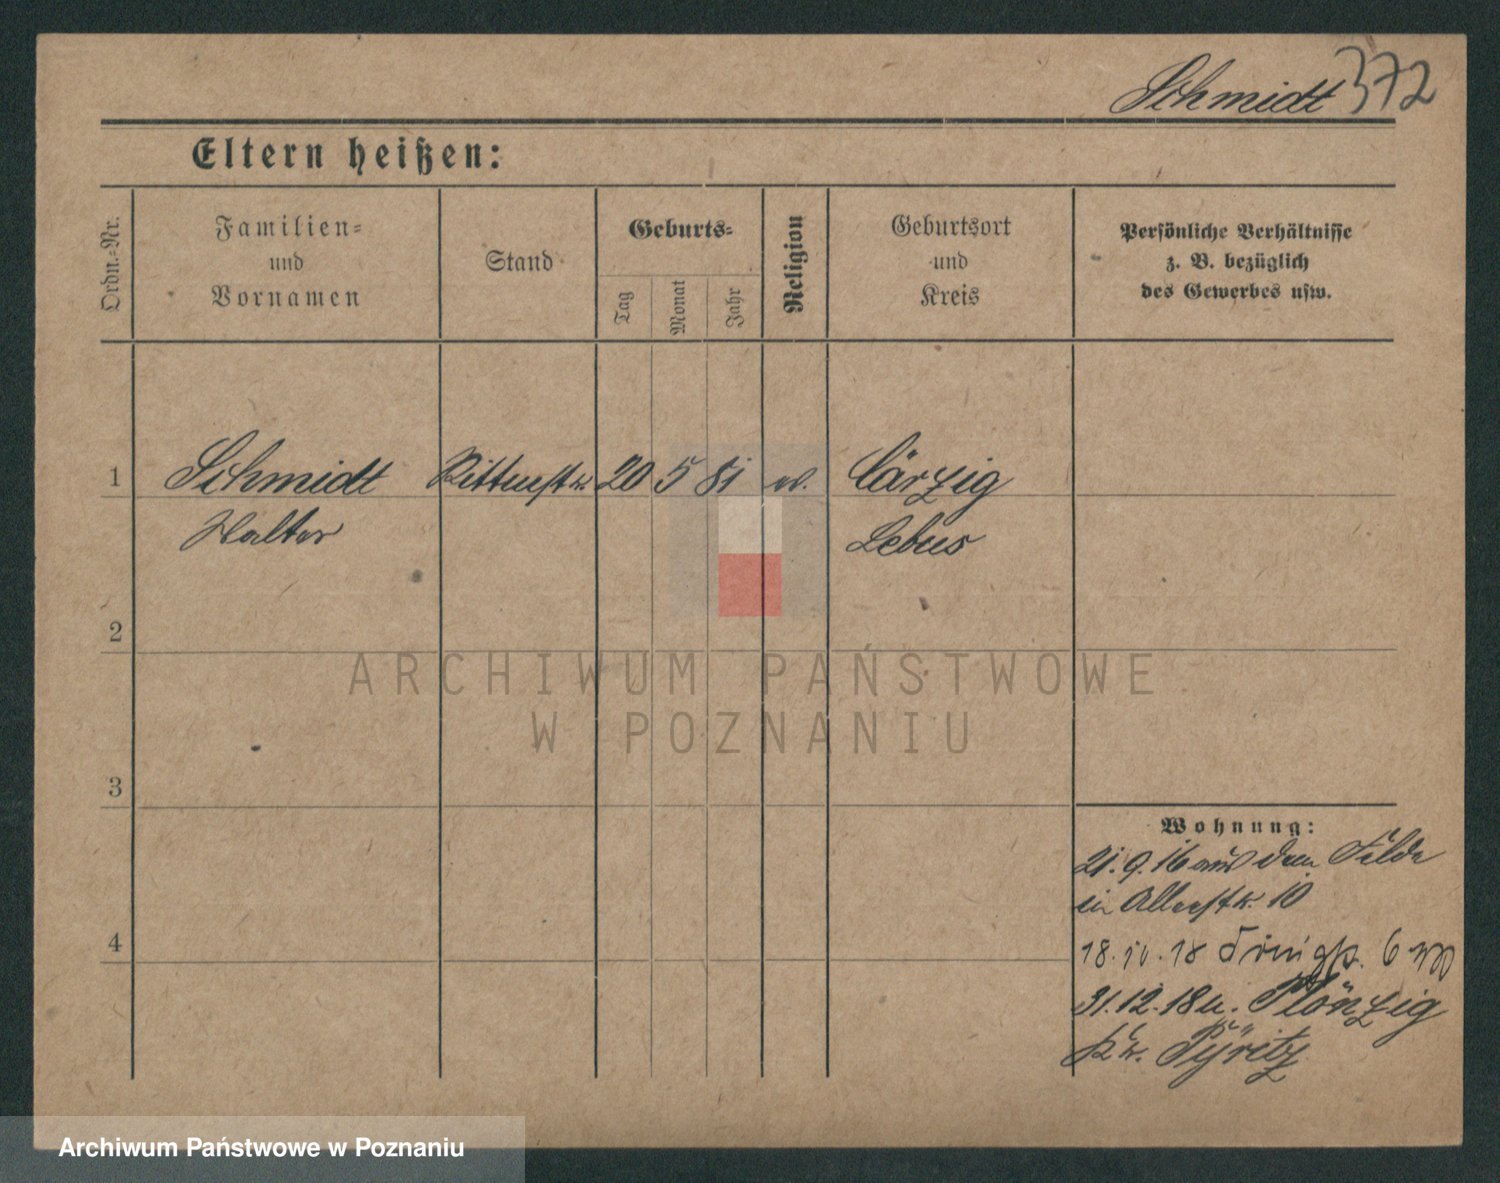 Schmidt 372
Eltern heißen:
Ordn.-Nr.
Familien-
und
Vornamen
Stand
Geburts-
Tag
Monat
Jahr
Religion
Geburtsort
und
Kreis
Persönliche Verhältnisse
z. B. bezüglich
des Gewerbes usw.
1
Schmidt
20 5 81 ev.
Lebus
2
ARCHIWUM PAŃSTWOWE
W POZNANIU
3
Wohnung:
21.9.16 aus dem Felde
in 10
4
18. 18 6
31.12.18 n. Plönzig
Kr. Pyritz
Archiwum Państwowe w Poznaniu